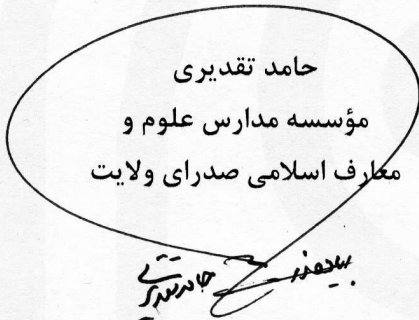 حامد تقدیری
مؤسسه مدارس علوم و
معارف اسلامی صدرای ولایت
حامد تقدیری